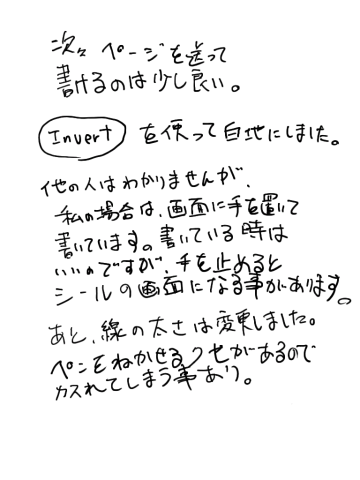 次々ページを送って
書けるのは少し良い。
Invert を使って白地にしました。
他の人はわかりませんが、
私の場合は、画面に手を置いて
書いています。書いている時は
いいのですが、手を止めると
シールの画面になる事があります。
あと、線の太さは変更しました。
ペンをねかせるクセがあるので
カスれてしまう事あり。